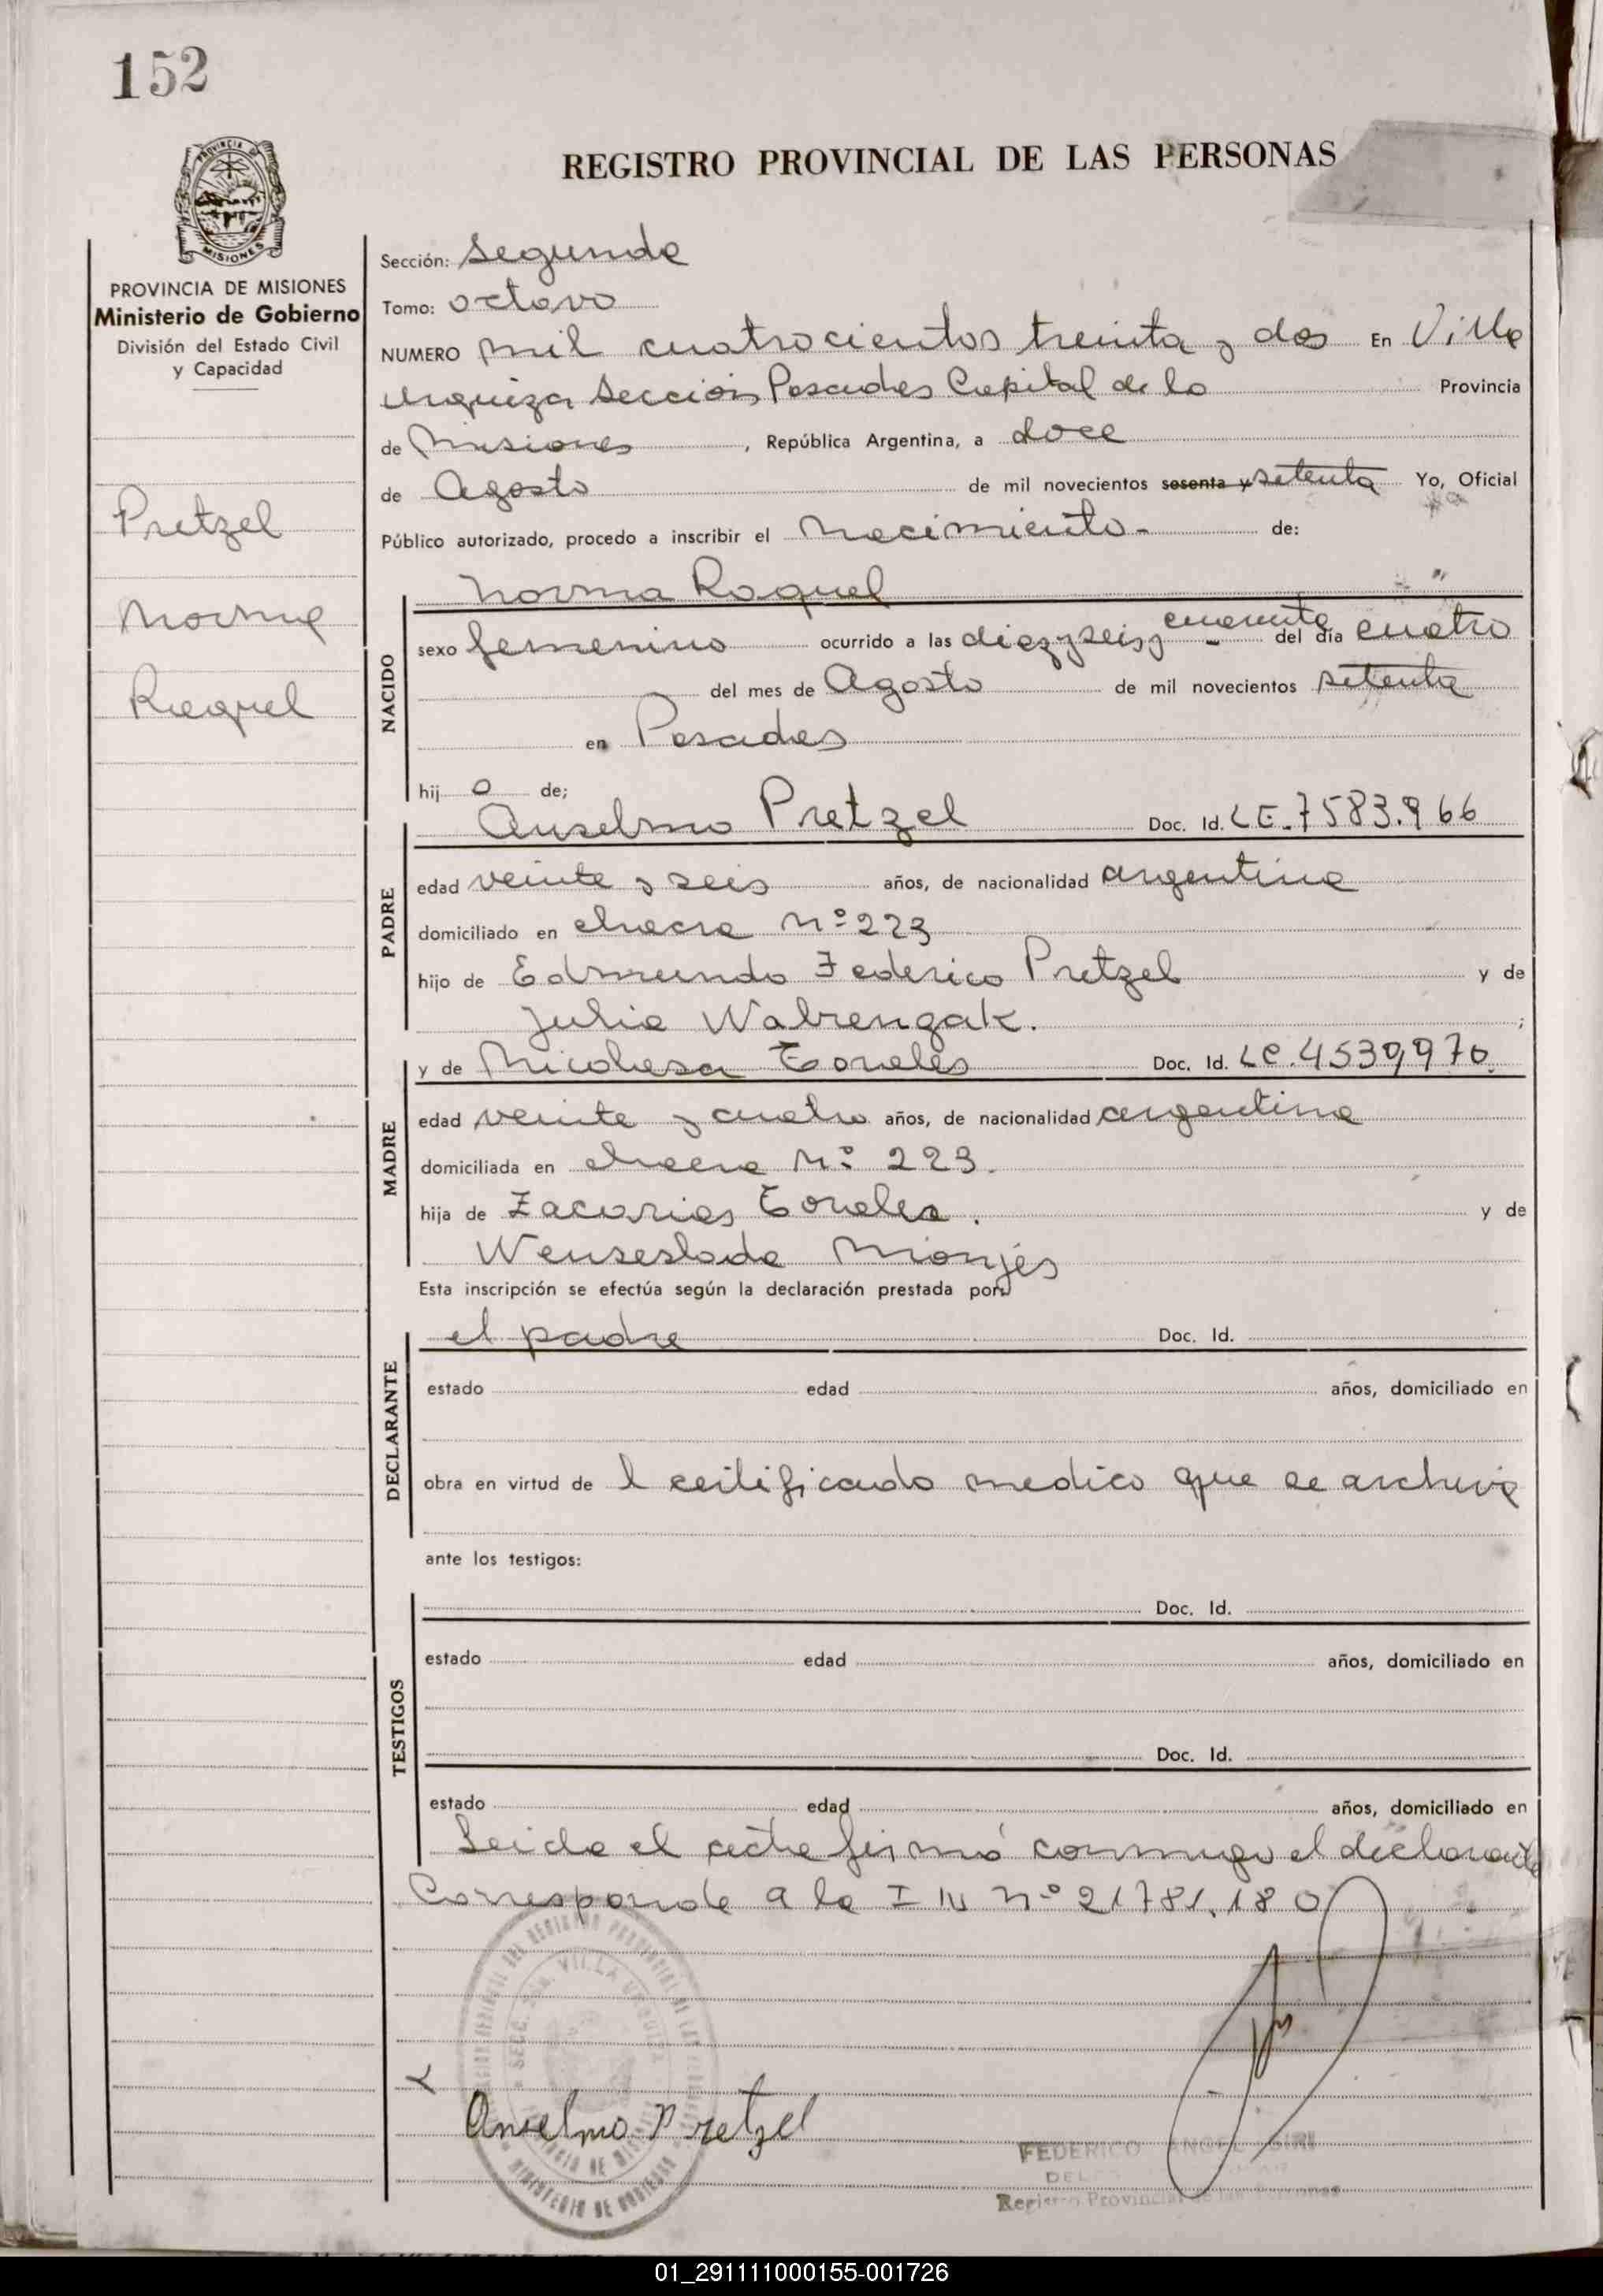 152
REGISTRO PROVINCIAL DE LAS PERSONAS
PROVINCIA DE MISIONES
Ministerio de Gobierno
División del Estado Civil
y Capacidad
Pretzel
Norma
Raquel
Sección: Segunda
Tomo: octavo
NUMERO mil cuatrocientos treinta y dos En Villa
Urquiza Sección Posadas Capital de la Provincia
de Misiones, República Argentina, a doce
de Agosto de mil novecientos sesenta y setenta Yo, Oficial
Público autorizado, procedo a inscribir el Nacimiento- de:
NACIDO
Norma Raquel
cuarenta
sexo femenino ocurrido a las diez y seis y - del día cuatro
del mes de Agosto de mil novecientos setenta
en Posadas
hij o de;
PADRE
Anselmo Pretzel Doc. Id. LE. 7583.966
edad veinte y seis años, de nacionalidad argentina
domiciliado en chacra Nº 223
hijo de Edmundo Federico Pretzel y de
Julia Wabrengak. ;
MADRE
y de Nicolasa Torales Doc. Id. LC. 4539970
edad veinte y cuatro años, de nacionalidad argentina
domiciliada en chacra Nº 223.
hija de Zacarias Torales. y de
Wenseslada Monjés
Esta inscripción se efectúa según la declaración prestada por:
DECLARANTE
el padre Doc. Id.
estado edad años, domiciliado en
obra en virtud de l certificado medico que se archiva
ante los testigos:
TESTIGOS
Doc. Id.
estado edad años, domiciliado en
Doc. Id.
estado edad años, domiciliado en
Leida el acta firmó conmigo el declarante
Corresponde a la I N Nº 21781.180
Anselmo Pretzel
FEDERICO ANGEL SIRI
Registro Provincial de las Personas
01_291111000155-001726